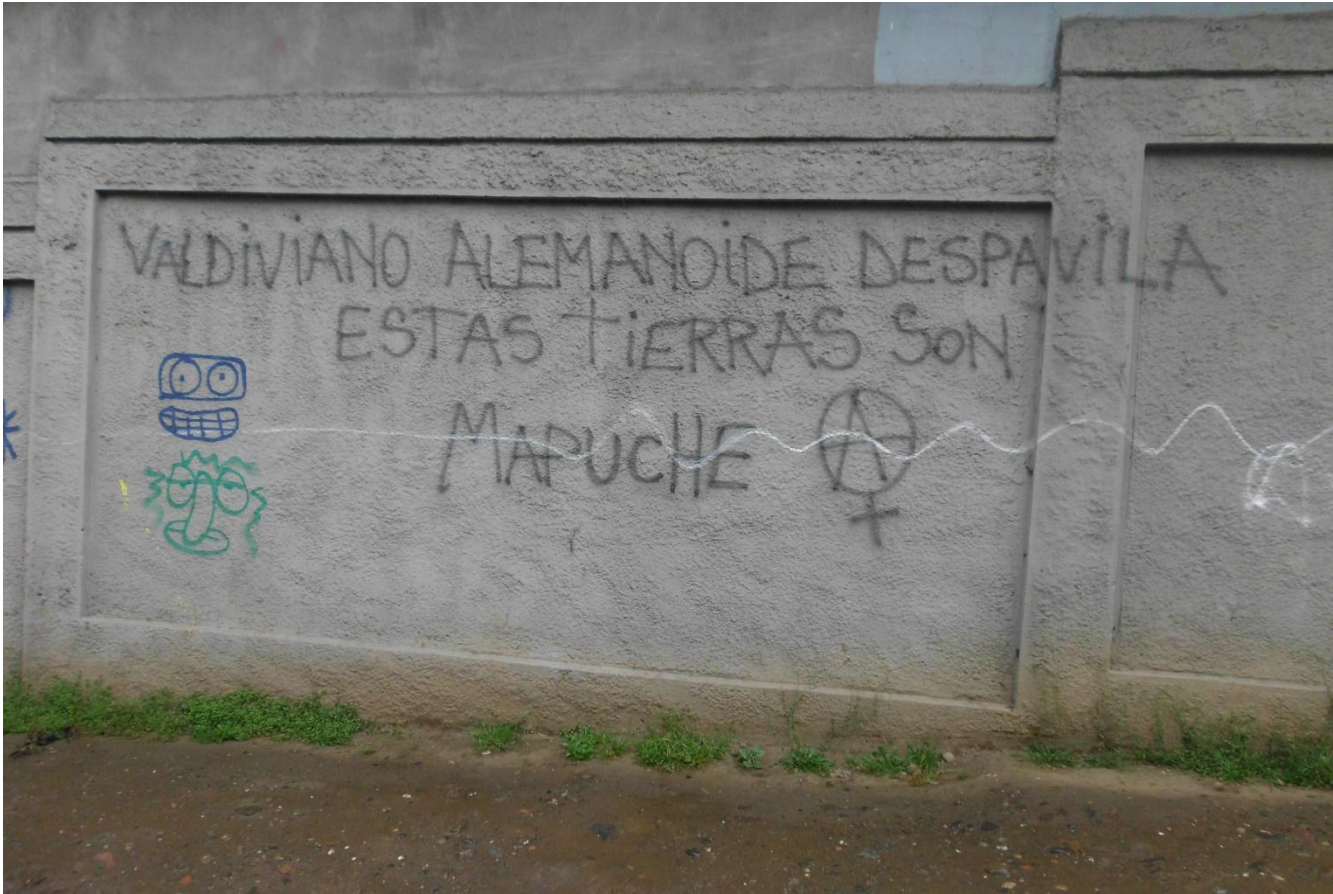 VALDIVIANO ALEMANOIDE DESPAVILA
ESTAS TIERRAS SON
MAPUCHE